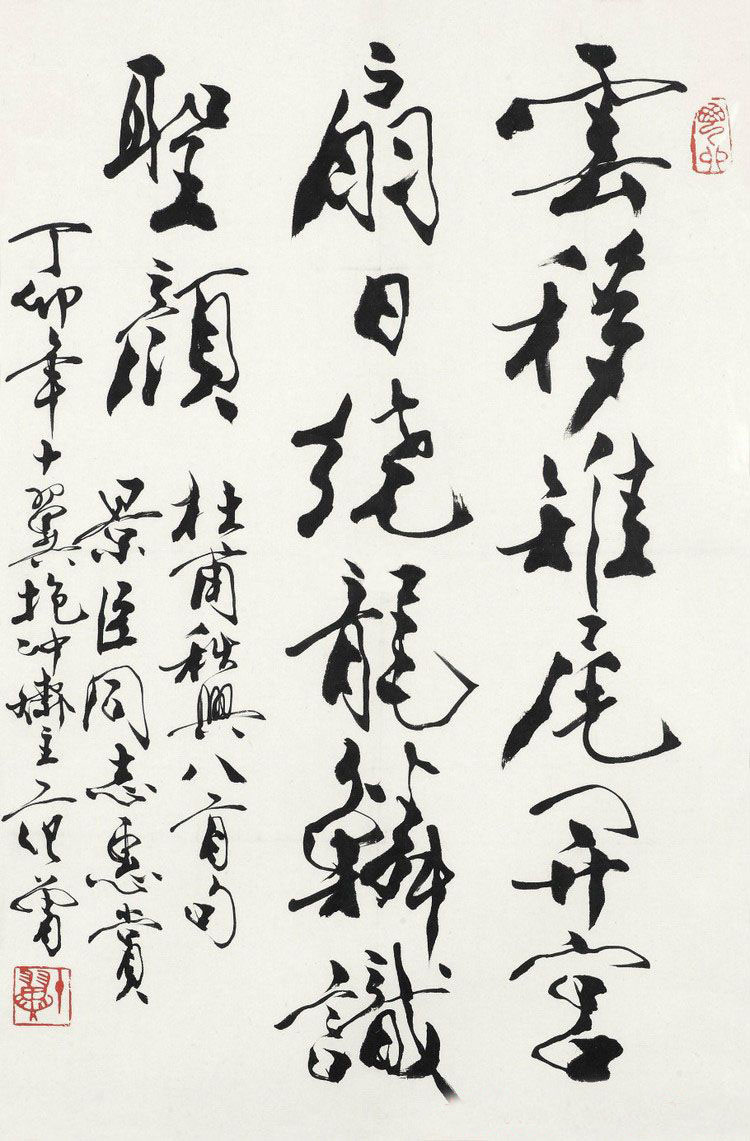 雲移雉尾開宮
扇日繞龍鱗識
聖顏
杜甫秋興八首句
景臣同志惠賞
丁卯年十翼抱冲齋主
十翼